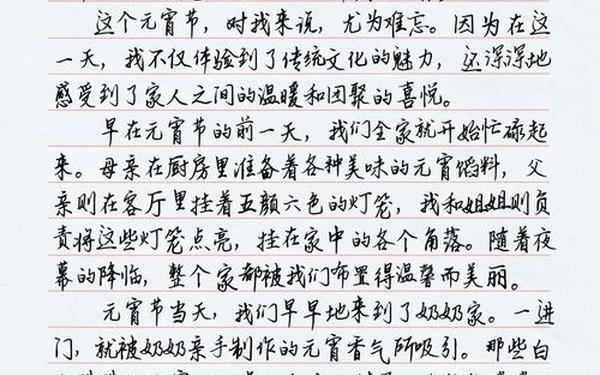 这个元宵节，对我来说，尤为难忘。因为在这
一天，我不仅体验到了传统文化的魅力，还深深地
感受到了家人之间的温暖和团聚的喜悦。
早在元宵节的前一天，我们全家就开始忙碌起
来。母亲在厨房里准备着各种美味的元宵馅料，父
亲则在客厅里挂着五颜六色的灯笼，我和姐姐则负
责将这些灯笼点亮，挂在家中的各个角落。随着夜
幕的降临，整个家都被我们布置得温馨而美丽。
元宵节当天，我们早早地来到了奶奶家。一进
门，就被奶奶亲手制作的元宵香气所吸引。那些白